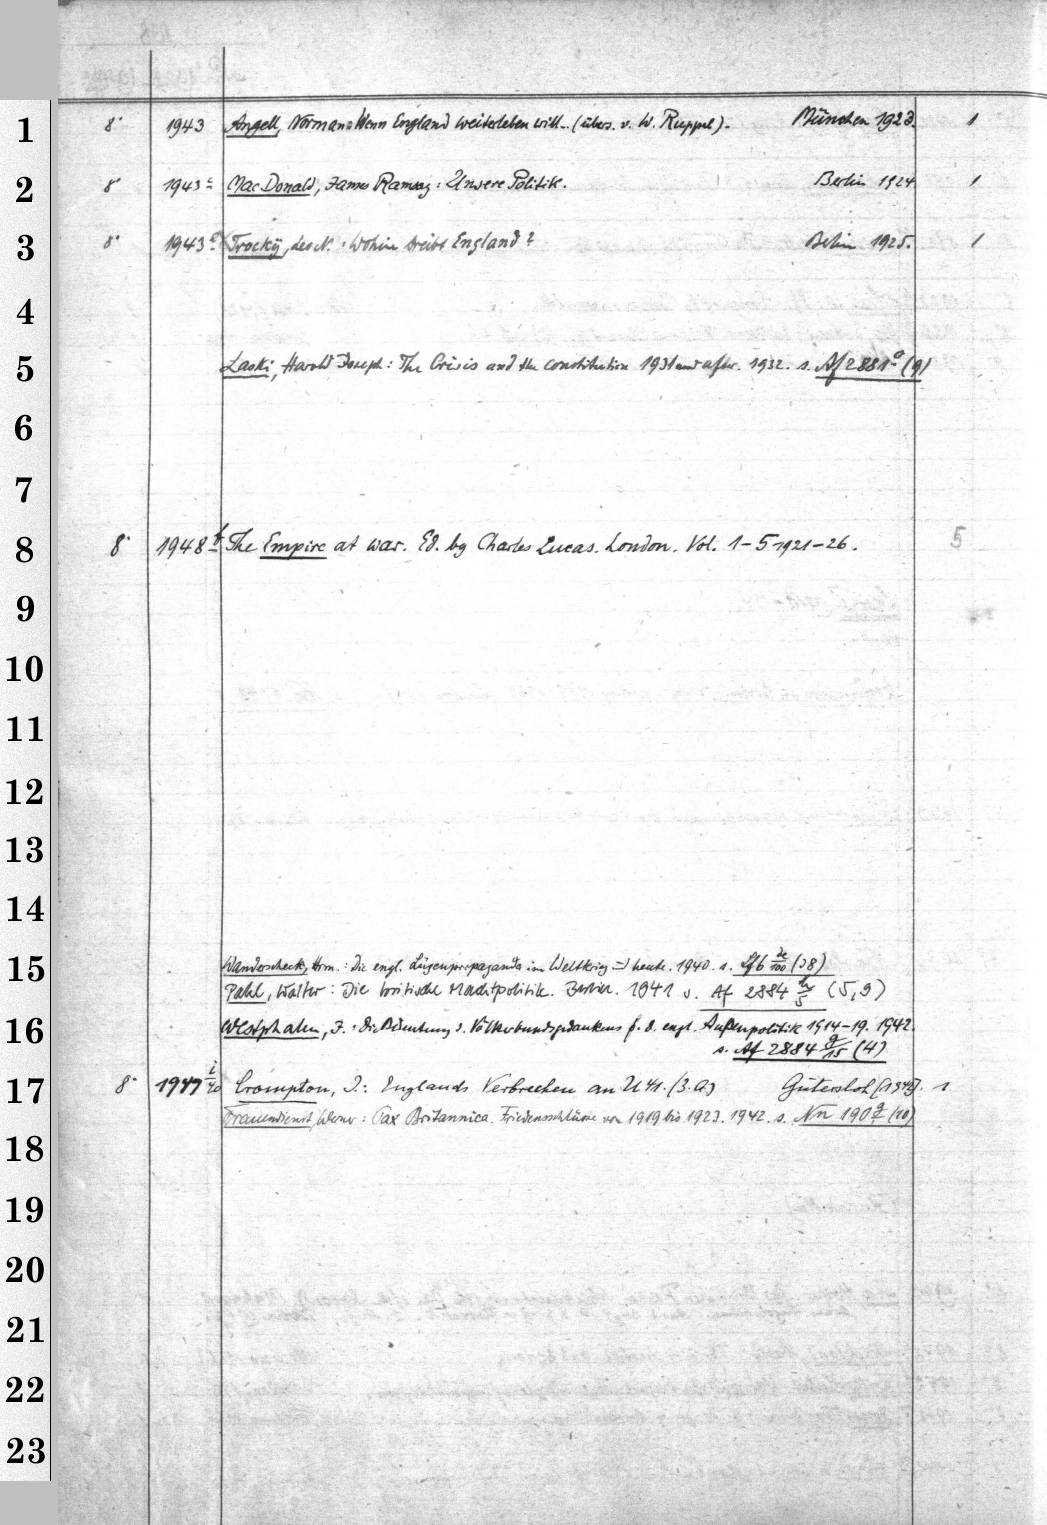 1
8° 1943 Angell, Norman: Wenn England weiterleben will.. (übers. v. W. Ruppel). München 1923. 1
2
8° 1943 c MacDonald, James Ramsay: Unsere Politik. Berlin 1924 1
3
8° 1943 e Trockij, Lev N.: Wohin treibt England? Berlin 1925. 1
4
5
Laski, Harold Joseph: The Crisis and the constitution 1931 and after. 1932. s. Af 2881 a (9)
6
7
8
8° 1948 f The Empire at war. Ed. by Charles Lucas. London. Vol. 1-5 1921-26. 5
9
10
11
12
13
14
15
Wanderscheck, Hrm.: Die engl. Lügenpropaganda im Weltkrieg u. heute. 1940. s. (38)
Pahl, Walter: Die britische Machtpolitik. Berlin. 1941 s. Af 2884 (5,9)
16
Westphalen, F.: Die Bedeutung d. Völkerbundsgedankens f. d. engl. Außenpolitik 1914-19. 1942.
s. Af 2884 g/15 (4)
17
8° 1949 i/40 Crompton, J.: Englands Verbrechen an U 41. (3. A) Gütersloh [1941]. 1
Frauendienst, Werner: Pax Britannica. Friedensschlüsse von 1919 bis 1923. 1942. s. Nn 190 g (10)
18
19
20
21
22
23